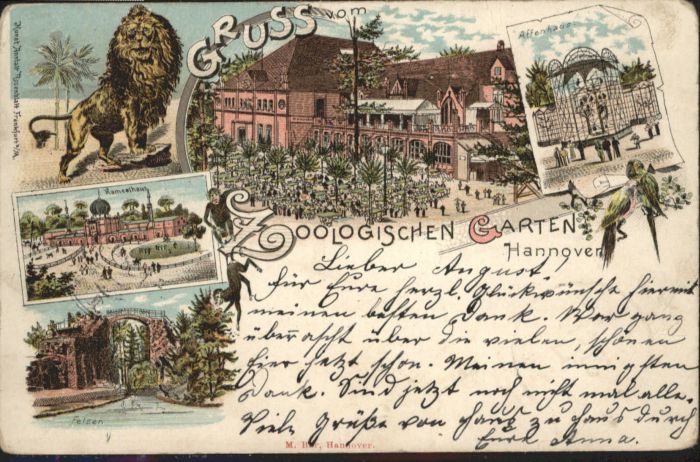 Gruss vom
Zoologischen Garten
Hannover
Affenhaus.
Kameelhaus
Felsen
Lieber August!
Für Eure herzl. Glückwünsche hiermit
meinen besten Dank. War ganz
überrascht über die vielen, schönen
Eier jetzt schon. Meinen innigsten
Dank. Sind jetzt noch nicht mal alle.
Viele Grüße von Haus zu Haus durch
Eure Anna.
M. Hannover.
Kunst Frankfurt